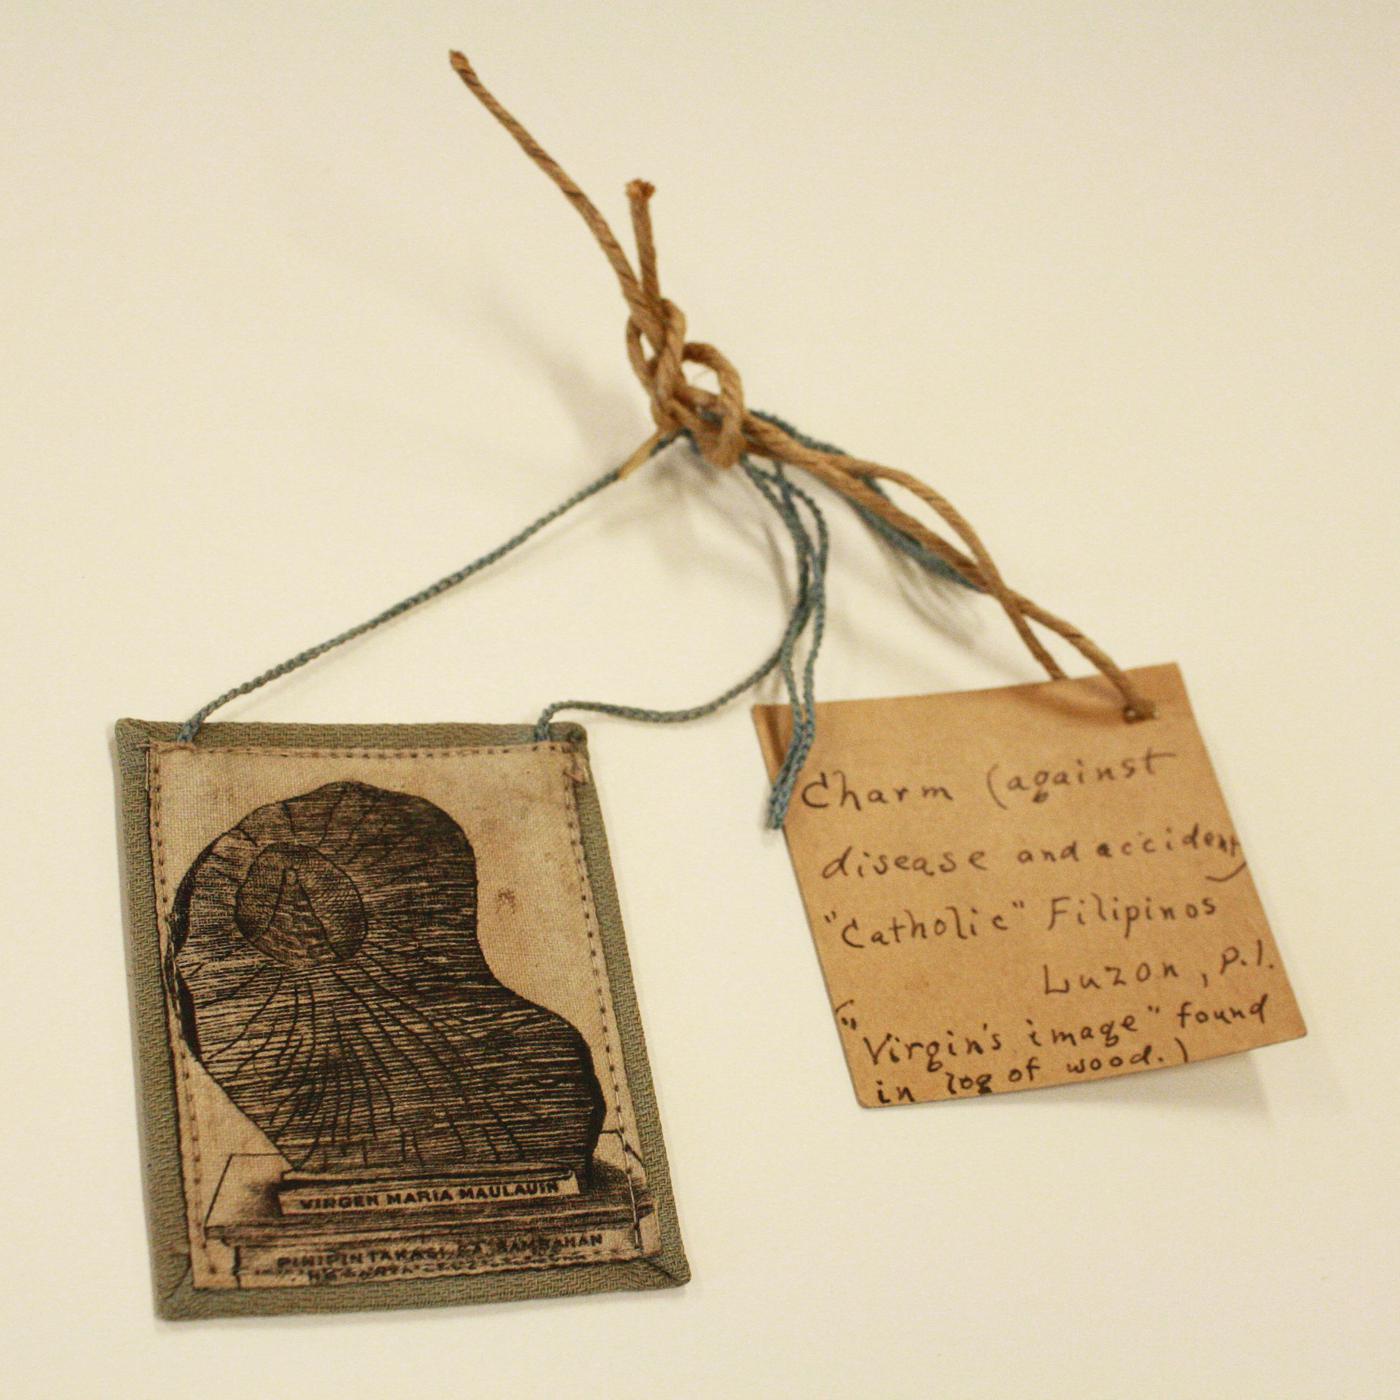 VIRGEN MARIA MAULAUIN
PINIPINTAKASI SA SAMBAHAN
Charm (against
disease and accident)
"Catholic" Filipinos
Luzon, P.I.
("Virgin's image" found
in log of wood.)